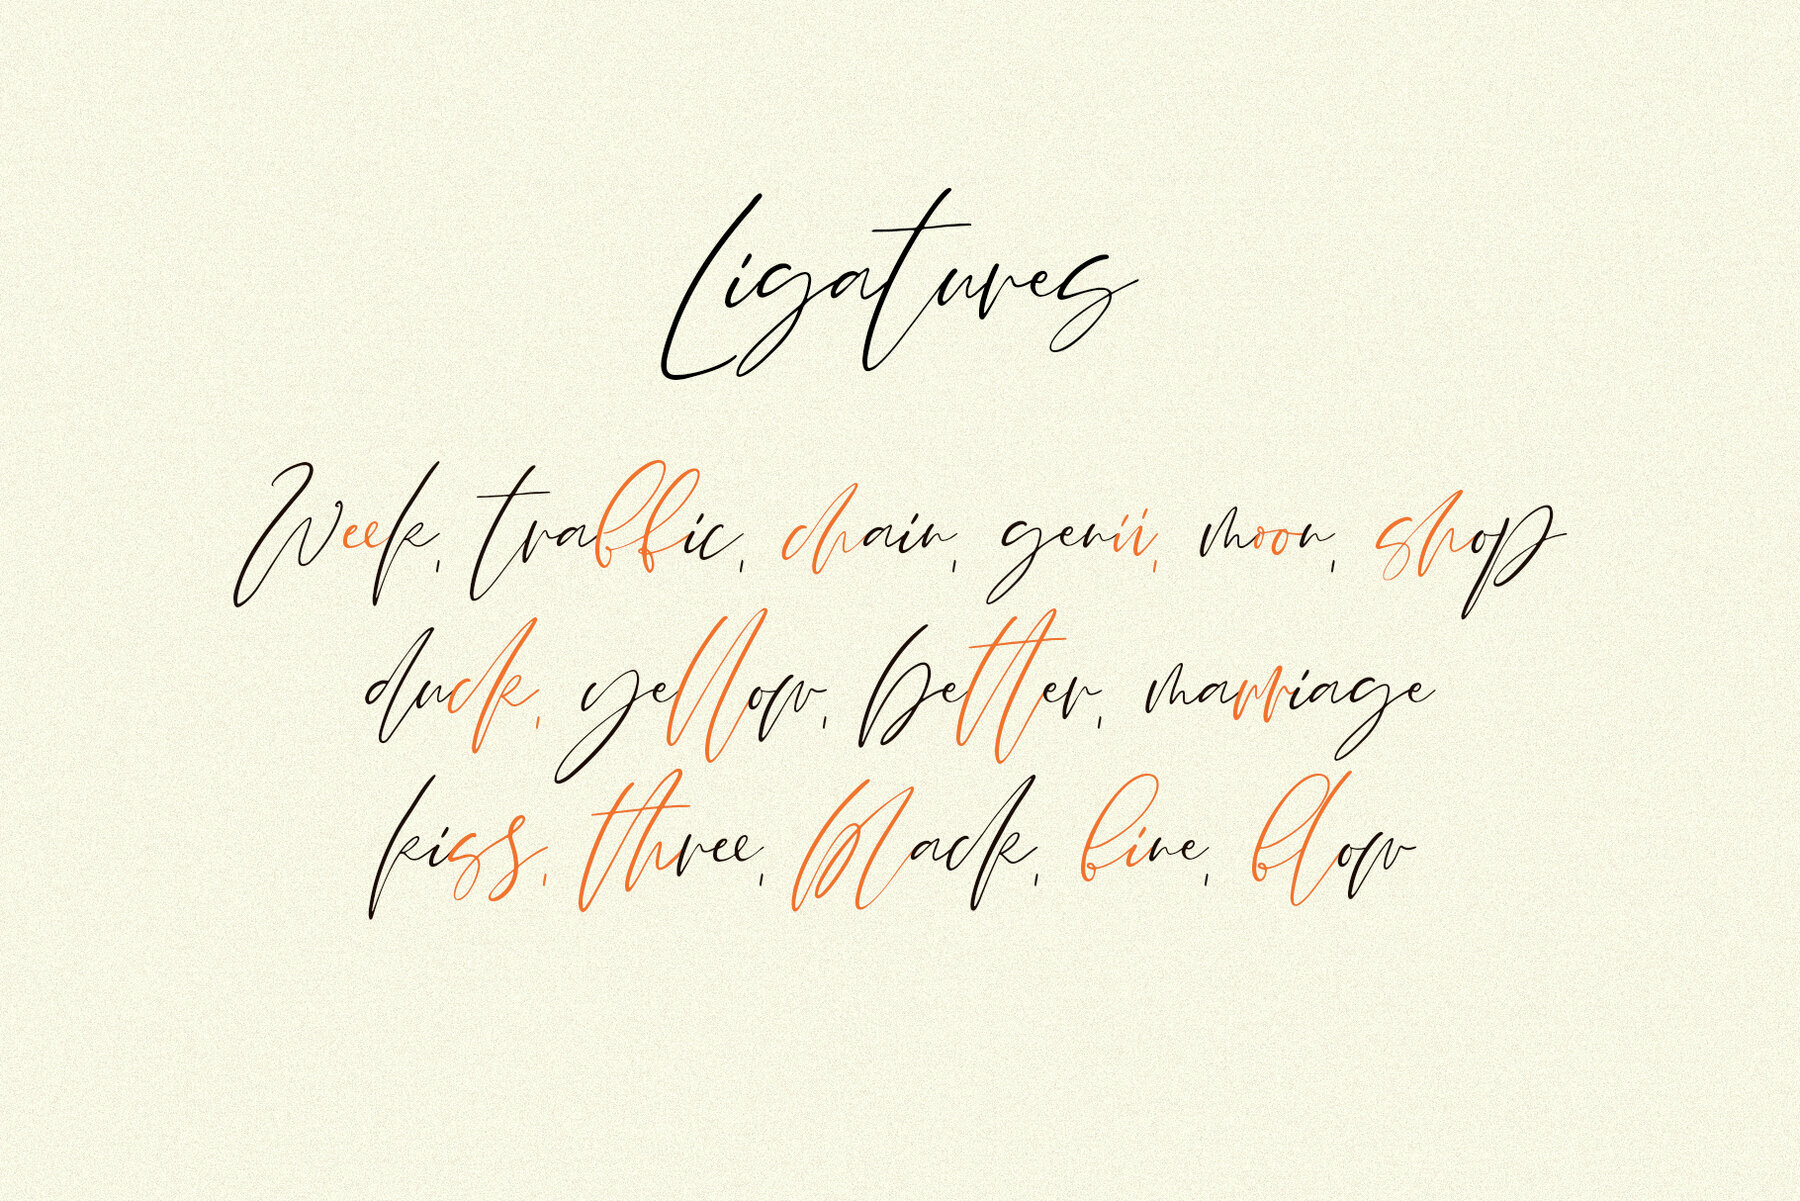 Ligatures
Week, traffic, chain, genii, moon, shop
duck, yellow, better, marriage
kiss, three, black, fine, flow